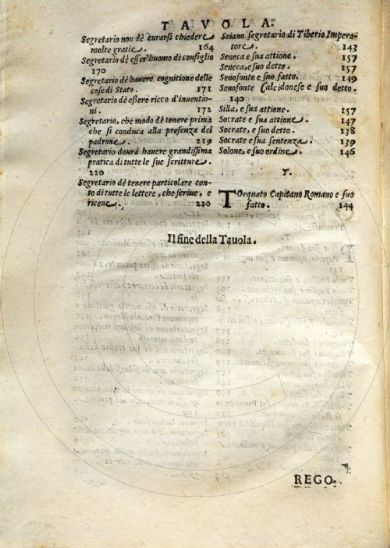 TAVOLA.
Segretario non dè curarsi chiedere
molte gratie. 164
Segretario dè esser huomo di consiglio
170
Segretario dè havere cognitione delle
cose di Stato. 171
Segretario dè essere ricco d'inuentio
ni. 172
Segretario, che modo dè tenere prima
che si conduca alla presenza del
padrone. 219
Segretario dourà hauere grandissima
pratica di tutte le sue scritture.
220
Segretario dè tenere particolare con-
to di tutte le lettere, che scriue, e
riceue. 220
Seiano segretario di Tiberio Impera
tore. 143
Seneca e sua attione. 157
Seneca, e suo detto. 157
Senofonte e suo fatto. 149
Senofonte Calcidonese e suo detto.
140
Silla, e sua attione. 157
Socrate e sua attione. 147
Socrate, e suo detto. 138
Socrate e sua sentenza. 139
Solone, e suo ordine. 146
T.
Torquato Capitano Romano e suo
fatto. 144
Il fine della Tauola.
REGO.